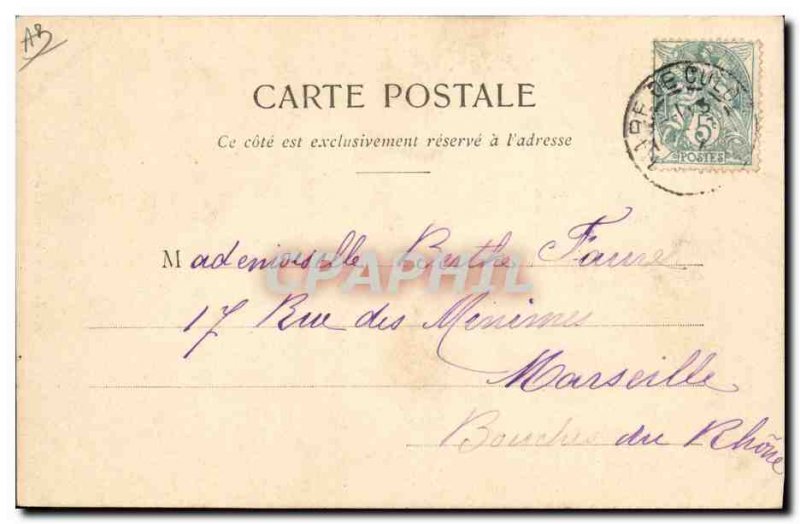 AB
CARTE POSTALE
Ce côté est exclusivement réservé à l'adresse
5c
POSTES
Mademoiselle Berthe Faure
17 Rue des Minimes
Marseille
Bouches du Rhône
CPAPHIL